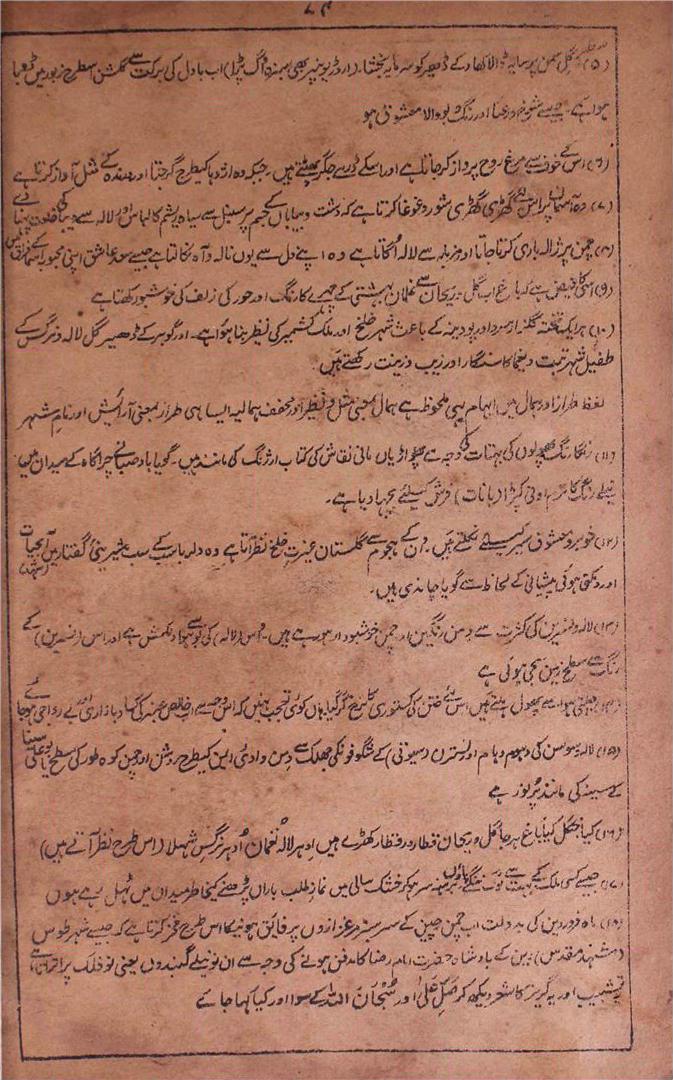 (۵) گل سمن پر سایہ ڈالا کھاد کے ڈھیر کو سرمایہ بخشا۔ اب بادل کی برکت سے گلشن اسطرح زیور میں ڈوبا
ہوا ہے۔ جیسے شوخ و رعنا اور رنگ و بو والا معشوق ہو
(۶) اس کے خوف سے مرغ روح پرواز کر جاتا ہے اور اسکے ڈر سے جگر پھٹتے ہیں۔ جبکہ وہ اژدہا کیطرح گرجتا اور کے مثل آواز کرتا ہے
(۷) وہ آسمان پر اس لئے گھڑی گھڑی شور و غوغا کرتا ہے کہ دشت و بیاباں کے جسم پر سنبل سے سیاہ ریشم کا لباس اور لالہ سے دیبا کی خلعت پہنا دے
(۸) چمن پر ژالہ باری کرتا جاتا اور مزبلہ سے لالہ اُگاتا ہے وہ اپنے دل سے یوں نالہ و آہ نکالتا ہے جیسے سعد عاشق اپنی محبوبہ اسما کے فراق میں
(۹) اسکا فیض ہے کہ باغ اب گل و ریحان سے غلمان بہشتی کے چہرے کا رنگ اور حور کی زلف کی خوشبو رکھتا ہے
(۱۰) ہر ایک تختہ گلزار سرو اور پودینہ کے باعث شہر خلخ اور ملک کشمیر کی نظیر بنا ہوا ہے۔ اور گوہر کے ڈھیر گل لالہ و نرگس کے
طفیل شہر تبت و یغما کا سنگار اور زیب و زینت رکھتے ہیں۔
لفظ طراز اور ہمال میں ایہام بھی ملحوظ ہے ہمال بمعنی مثل و نظیر اور مخفف ہمالیہ ایسا ہی طراز بمعنی آرائش اور نام شہر
(۱۱) رنگا رنگ پھولوں کی بہتات کی وجہ سے پھلواڑیاں مانی نقاش کی کتاب ارژنگ کی مانند ہیں۔ گویا باد صبا نے چراگاہ کے میدان میں
نیلے رنگ کا نرم اونی کپڑا (بانات) فرش کیلئے بچھا دیا ہے۔
(۱۲) خوبرو معشوق سیر کیلئے نکلتے ہیں۔ ان کے ہجوم سے گلستان غیرت خلخ نظر آتا ہے وہ دلربا سب کے سب شیرینی گفتار میں آبحیات (شہد)
اور دمکتی ہوئی پیشانی کے لحاظ سے گویا چاندی ہیں۔
(۱۳) لالہ و نسرین کی کثرت سے دمن رنگین اور چمن خوشبودار ہو رہے ہیں۔ اس (لالہ) کی بو سے ہوا دلکش ہے اور اس (نسرین) کے
رنگ سے سطح زمین سجی ہوئی ہے
(۱۴) ہوا سے پھول ہلتے ہیں اس لئے ختن کی کستوری کا نرخ گر گیا ہاں کوئی تعجب نہیں کہ اس وجہ سے اب خالص عنبر کی کساد بازاری اور بے رواجی ہو جائے
(۱۵) لالہ و سوسن کی دھوم دھام اور نسترن (سیوتی) کے شگوفونکی جھلک سے دمن وادی ایمن کیطرح روشن اور چمن کوہ طور کی سطح یا بوعلی سینا
کے سینہ کی مانند پُرنور ہے
(۱۶) کیا جنگل کیا باغ ہر جا گل و ریحان قطار در قطار کھڑے ہیں اِدھر لالہ نعمان اُدھر نرگس شہلا (اس طرح نظر آتے ہیں)
(۱۷) جیسے کسی ملک کے بہت سے لوگ ننگے پاؤں برہنہ سر ہو کر خشک سالی میں نماز طلب باراں پڑھنے کیخاطر میدان میں ٹہل رہے ہوں
(۱۸) ماہ فروردین کی بدولت اب چمن چین کے سرسبز مرغزاروں پر فایق ہونیکا اس طرح فخر کرتا ہے کہ جیسے شہر طوس
(مشہد مقدس) دین کے بادشاہ حضرت امام رضا کا مدفن ہونے کی وجہ سے ان نو نیلے گنبدوں یعنی نو فلک پر اتراتا ہے
یہ تشبیب اور یہ گریز کا شعر دیکھ کر صَلِّ عَلیٰ اور سُبْحَانَ اللہ کے سوا اور کیا کہا جائے